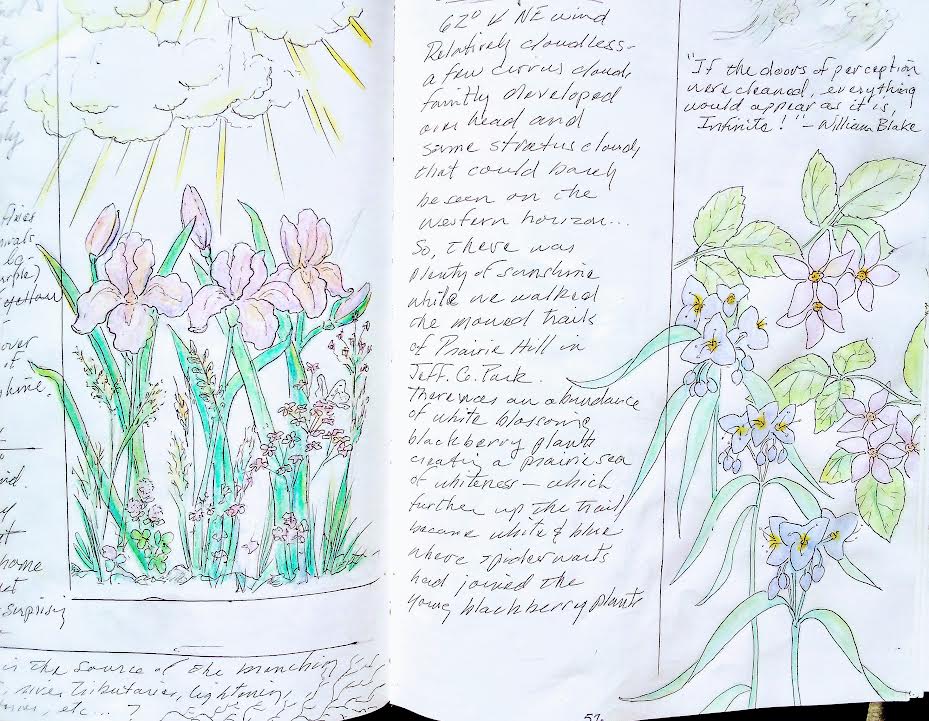 fixes
yellow
over
if
shine.
home
Surprising
is the source of the branching
, river tributaries, lightning,
, etc... ?
62° NE wind
Relatively cloudless-
a few cirrus clouds
faintly developed
over head and
some stratus clouds
that could barely
be seen on the
western horizon...
So, there was
plenty of sunshine
while we walked
the mowed trails
of Prairie Hill in
Jeff. Co. Park.
There was an abundance
of white blossoming
blackberry plants
creating a prairie sea
of whiteness - which
further up the trail
became white & blue
where spiderworts
had joined the
young blackberry plants
57.
"If the doors of perception
were cleaned, everything
would appear as it is,
Infinite!" - William Blake